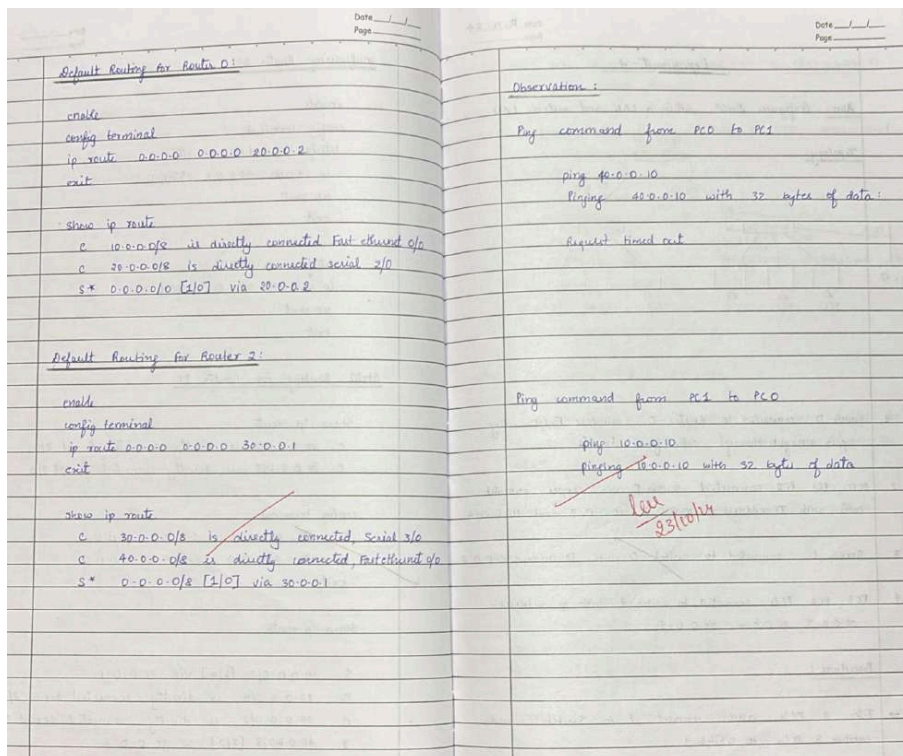 Date
Page
Default Routing for Router 0:
enable
config terminal
ip route 0.0.0.0 0.0.0.0 20.0.0.2
exit
show ip route
C 10.0.0.0/8 is directly connected Fast ethernet 0/0
C 20.0.0.0/8 is directly connected serial 2/0
S* 0.0.0.0/0 [1/0] via 20.0.0.2
Default Routing for Router 2:
enable
config terminal
ip route 0.0.0.0 0.0.0.0 30.0.0.1
exit
show ip route
C 30.0.0.0/8 is directly connected, Serial 3/0
C 40.0.0.0/8 is directly connected, Fast ethernet 0/0
S* 0.0.0.0/8 [1/0] via 30.0.0.1
Date
Page
Observation:
Ping command from PC0 to PC1
ping 40.0.0.10
Pinging 40.0.0.10 with 32 bytes of data:
Request timed out
Ping command from PC1 to PC0
ping 10.0.0.10
pinging 10.0.0.10 with 32 bytes of data
23/10/24